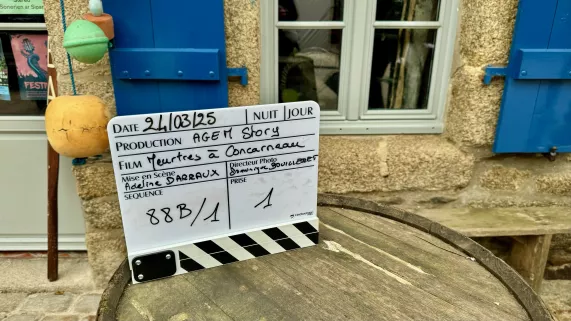 DATE 24/03/25 NUIT JOUR
PRODUCTION AGEM Story
FILM Meurtres à Concarneau
Mise en Scène Directeur Photo
Adeline DARRAUX
SEQUENCE PRISE
88B/1 1
FESTI